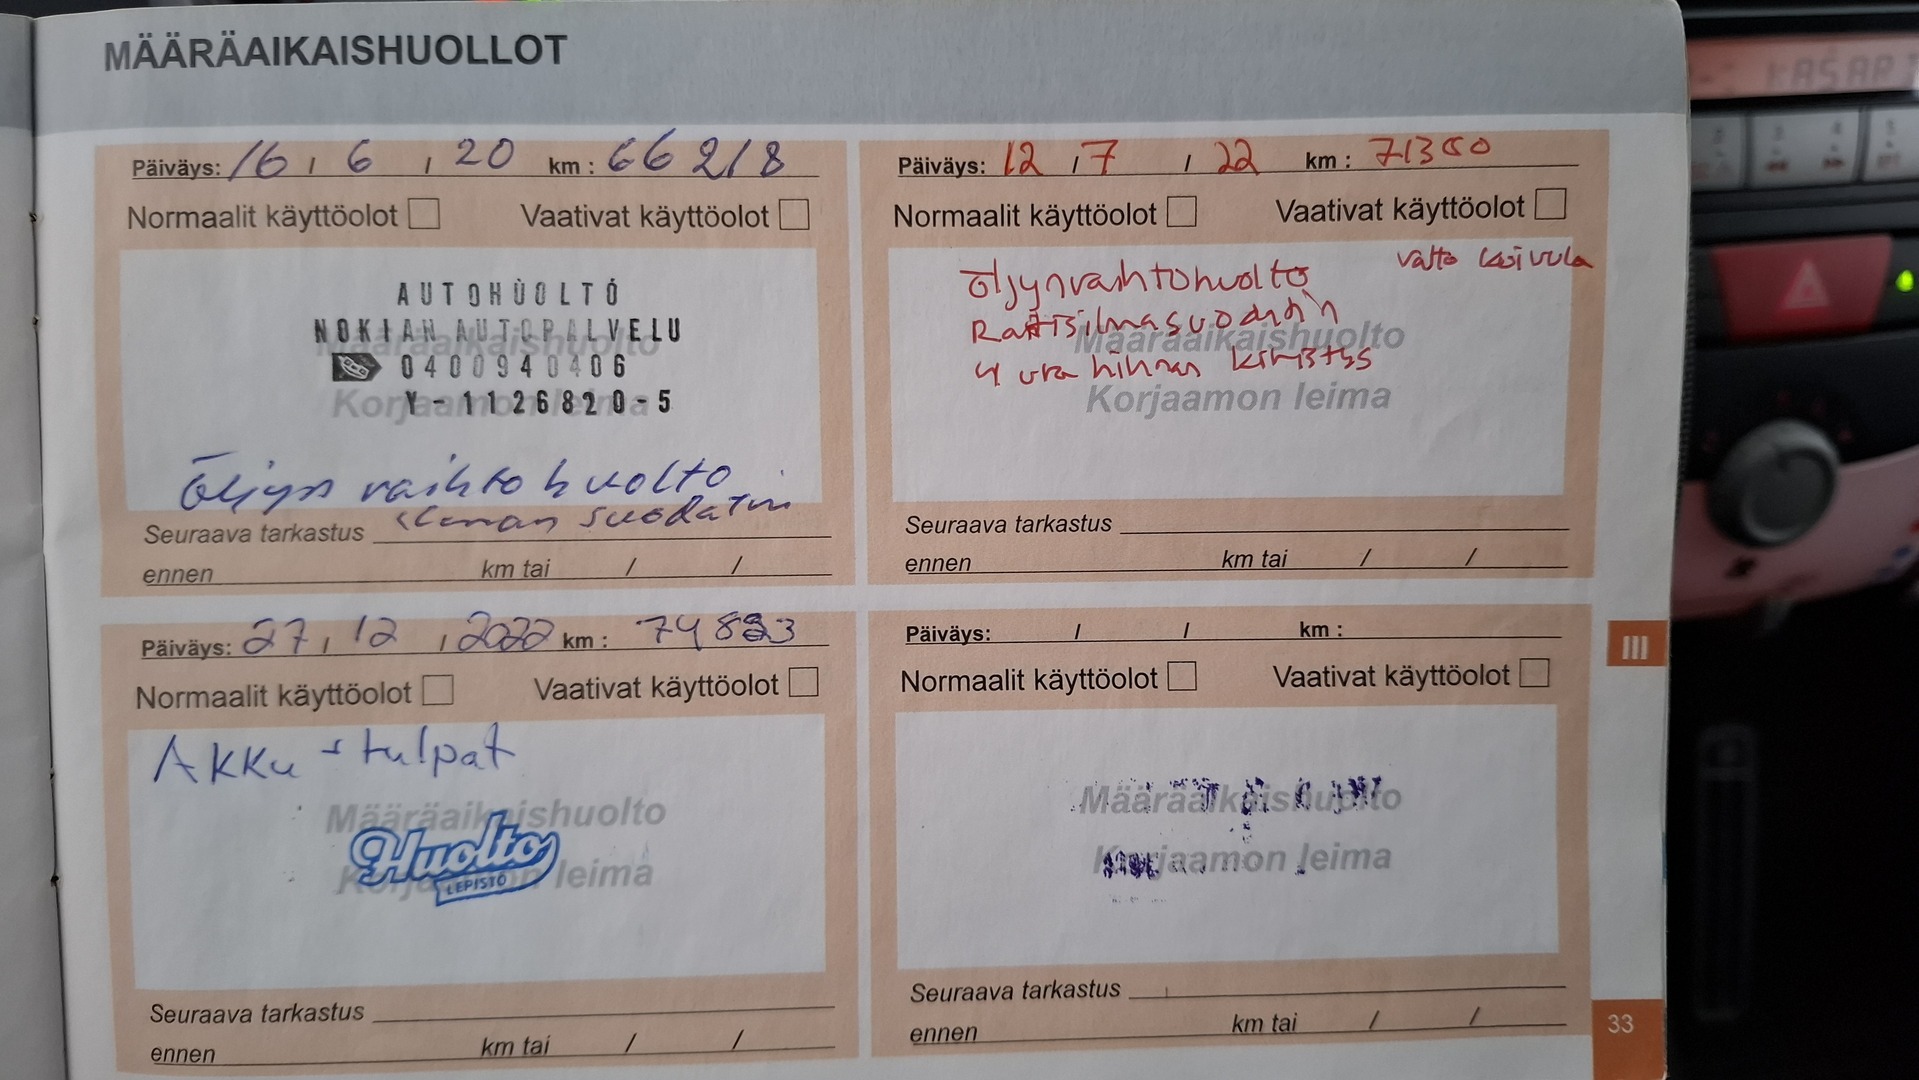 MÄÄRÄAIKAISHUOLLOT
Päiväys: 16 / 6 / 20 km : 66218
Normaalit käyttöolot Vaativat käyttöolot
AUTOHUOLTO
NOKIAN AUTOPALVELU
Määräaikaishuolto
0400940406
Korjaamon leima
Y-1126820-5
Öljyn vaihto huolto
suodatin
Seuraava tarkastus
ennen km tai / /
Päiväys: 12 / 7 / 22 km : 71380
Normaalit käyttöolot Vaativat käyttöolot
Valto Koivula
öljynvaihtohuolto
Raitisilmasuodatin
Määräaikaishuolto
4 ura hihnan kiristys
Korjaamon leima
Seuraava tarkastus
ennen km tai / /
Päiväys: 27 / 12 / 2022 km : 74823
Normaalit käyttöolot Vaativat käyttöolot
Akku + tulpat
Määräaikaishuolto
Huolto
Korjaamon leima
LEPISTÖ
Seuraava tarkastus
ennen km tai / /
Päiväys: / / km :
Normaalit käyttöolot Vaativat käyttöolot
Määräaikaishuolto
Korjaamon leima
Seuraava tarkastus
ennen km tai / /
III
33